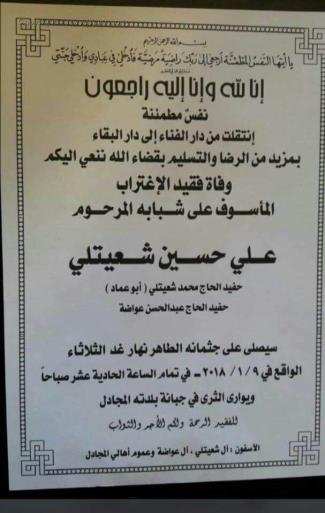 بسم الله الرحمن الرحيم
يا أيتها النفس المطمئنة ارجعي إلى ربك راضية مرضية فادخلي في عبادي وادخلي جنتي
إنا لله وإنا إليه راجعون
نفس مطمئنة
إنتقلت من دار الفناء إلى دار البقاء
بمزيد من الرضا والتسليم بقضاء الله ننعي اليكم
وفاة فقيد الإغتراب
المأسوف على شبابه المرحوم
علي حسين شعيتلي
حفيد الحاج محمد شعيتلي ( أبو عماد )
حفيد الحاج عبدالحسن عواضة
سيصلى على جثمانه الطاهر نهار غد الثلاثاء
الواقع في ٩ / ١ / ٢٠١٨ - في تمام الساعة الحادية عشر صباحاً
ويوارى الثرى في جبانة بلدته المجادل
للفقيد الرحمة ولكم الأجر والثواب
الآسفون : آل شعيتلي ، آل عواضة وعموم أهالي المجادل